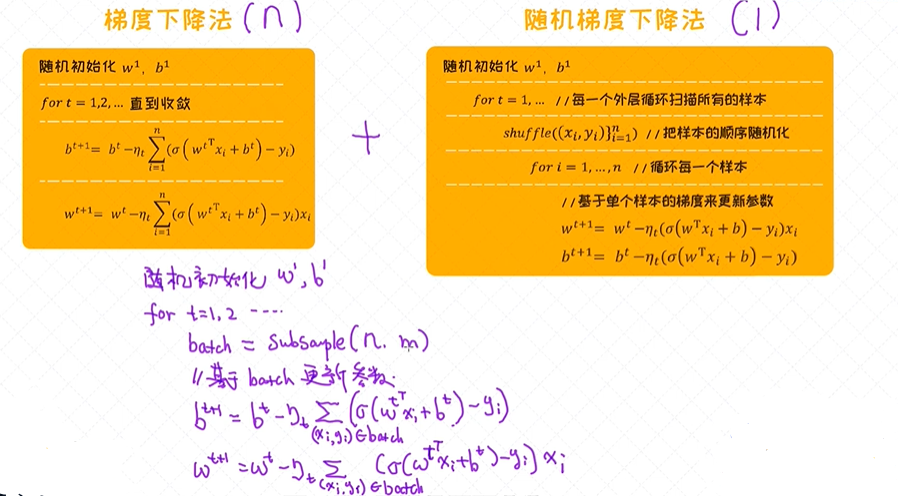 梯度下降法(n)
随机初始化 w¹, b¹
for t = 1,2, ... 直到收敛
b^{t+1} = b^t − η_t ∑_{i=1}^{n} (σ(w^{tT} x_i + b^t) − y_i)
w^{t+1} = w^t − η_t ∑_{i=1}^{n} (σ(w^{tT} x_i + b^t) − y_i)x_i
+
随机梯度下降法(1)
随机初始化 w¹, b¹
for t = 1, ... //每一个外层循环扫描所有的样本
shuffle((x_i, y_i)}_{i=1}^{n}) //把样本的顺序随机化
for i = 1, ..., n //循环每一个样本
//基于单个样本的梯度来更新参数
w^{t+1} = w^t − η_t(σ(w^T x_i + b) − y_i)x_i
b^{t+1} = b^t − η_t(σ(w^T x_i + b) − y_i)
随机初始化 w¹, b¹
for t=1,2 ----
batch = subsaple(n. m)
//基于 batch 更新参数.
b^{t+1} = b^t − η_t ∑_{(x_i,y_i)∈batch} (σ(w^{tT} x_i + b^t) − y_i)
w^{t+1} = w^t − η_t ∑_{(x_i,y_i)∈batch} (σ(w^{tT} x_i + b^t) − y_i) x_i